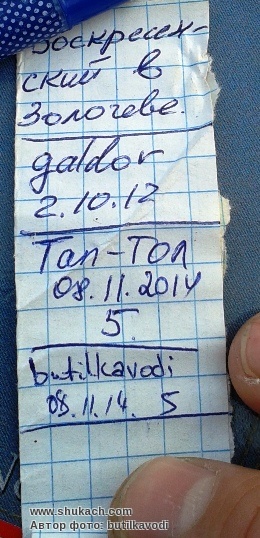 Воскресен-
ский в
Золочеве.
galdor
2.10.12
Тап-Топ
08.11.2014
5
butilkavodi
08.11.14. 5
www.shukach.com
Автор фото: butilkavodi